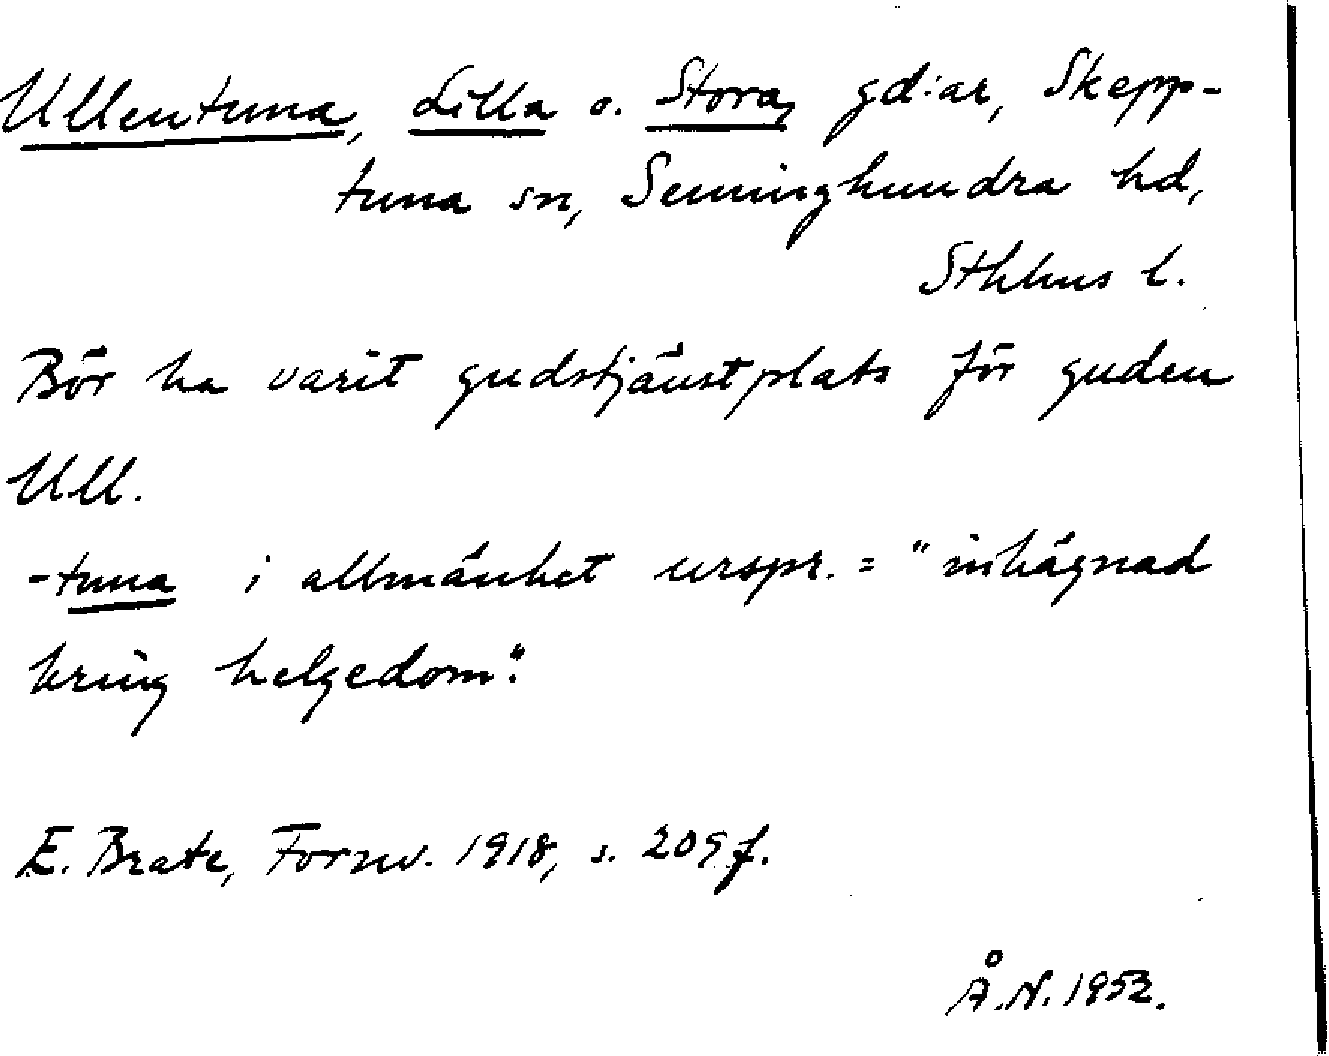 Ullentuna, Lilla o. Stora, gd:ar, Skepp-
tuna sn, Seminghundra hd,
Sthlms l.
Bör ha varit gudstjänstplats för guden
Ull.
-tuna i allmänhet urspr. = "inhägnad
kring helgedom".
E. Brate, Fornv. 1918, s. 209 f.
Å.N. 1953.